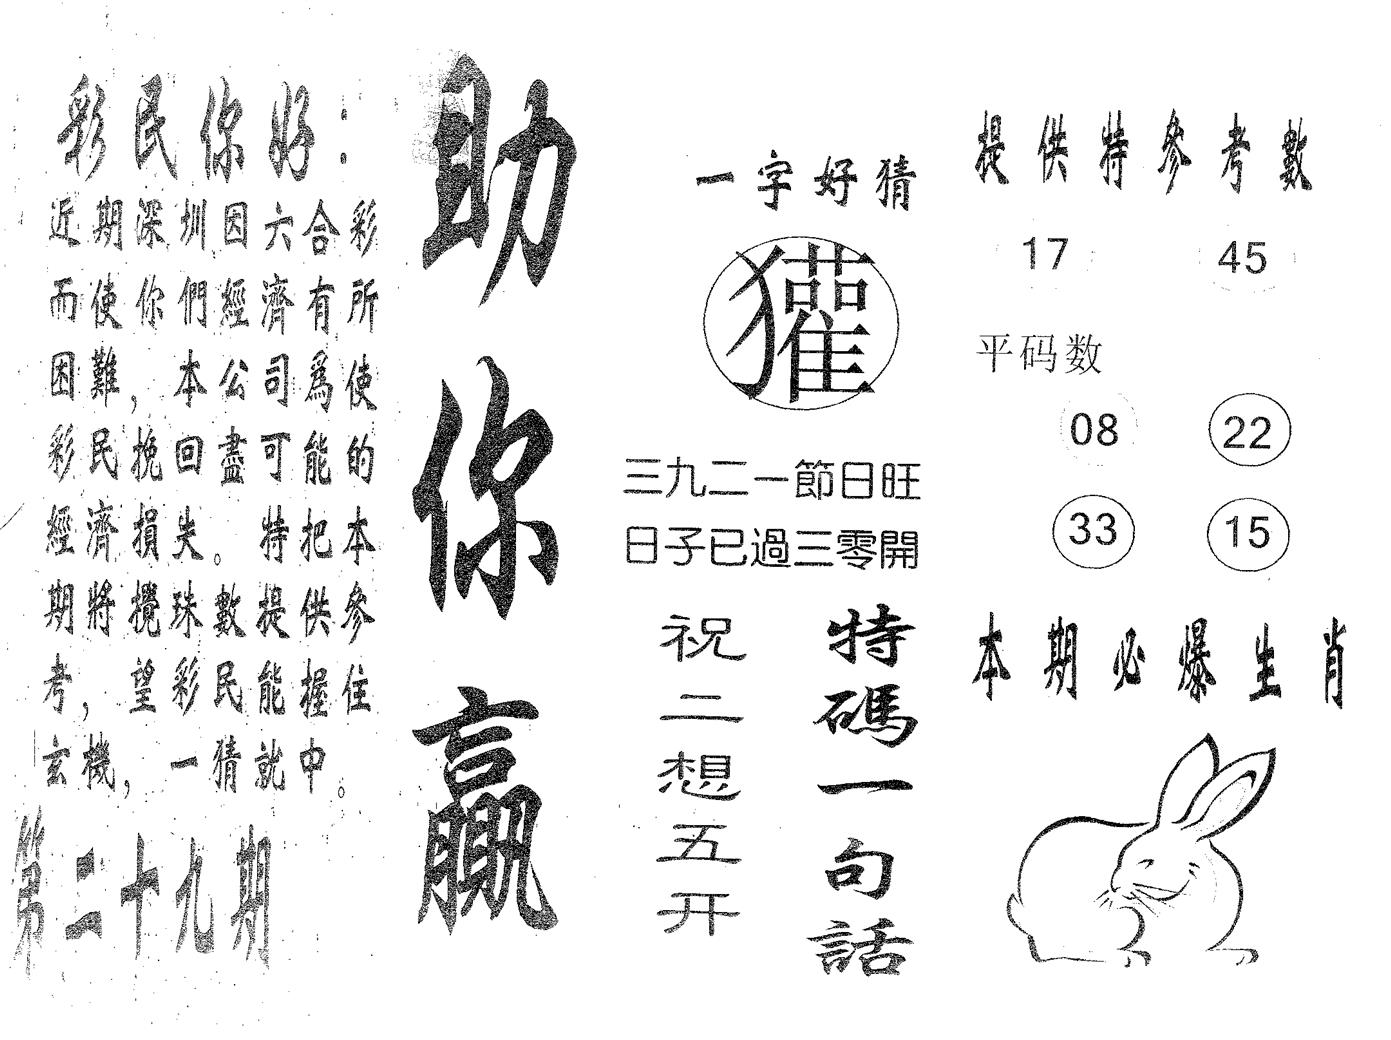 彩民你好：
近期深圳因六合彩
而使你們經濟有所
困難，本公司爲使
彩民挽回盡可能的
經濟損失。特把本
期將攪珠數提供參
考，望彩民能握住
玄機，一猜就中。
第二十九期
助你贏
一字好猜
獾
三九二一節日旺
日子已過三零開
特碼一句話
祝二想五开
提供特參考數
17 45
平码数
08 22
33 15
本期必爆生肖